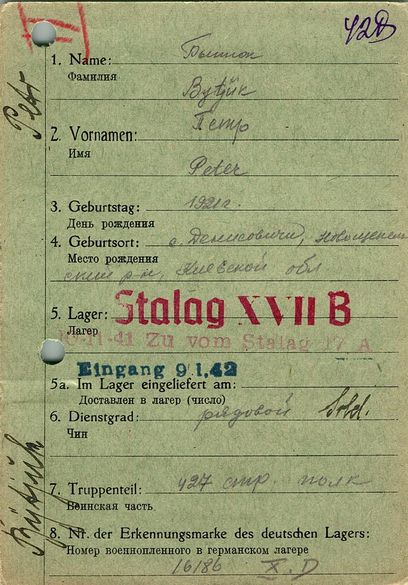 42D
1. Name: Бытюк
Фамилия
Bytjik
2. Vornamen: Петро
Имя
Peter
3. Geburtstag: 1921г.
День рождения
4. Geburtsort: с. Денисовичи,
Место рождения
р-н, Киевской обл
5. Lager: Stalag XVII B
Лагер
11.41 Zu vom Stalag 17 A
Eingang 9.1.42
5a. Im Lager eingeliefert am:
Доставлен в лагер (число)
6. Dienstgrad: рядовой Sold.
Чин
7. Truppenteil: 427 стр. полк
Воинская часть
8. Nr. der Erkennungsmarke des deutschen Lagers:
Номер военнопленного в германском лагере
16186 X.D
Petr